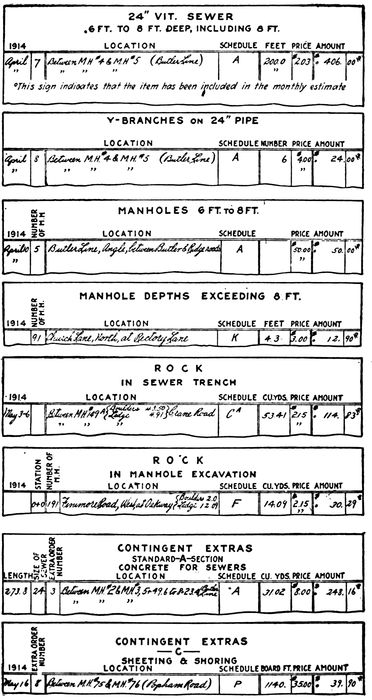 24" VIT. SEWER
6 FT. TO 8 FT. DEEP, INCLUDING 8 FT.
1914 LOCATION SCHEDULE FEET PRICE AMOUNT
April 7 Between M.H. #4 & M.H. #5 (Butler Line) A 200.0 $2.03 $406.00*
" " " "
*This sign indicates that the item has been included in the monthly estimate
Y-BRANCHES ON 24" PIPE
1914 LOCATION SCHEDULE NUMBER PRICE AMOUNT
April 8 Between M.H. #4 & M.H. #5 (Butler Line) A 6 $4.00 $24.00*
" " " "
MANHOLES 6 FT. TO 8 FT.
1914 NUMBER OF M.H. LOCATION SCHEDULE PRICE AMOUNT
April 10 5 Butler Line, Angle, between Butler & Edgewood A $50.00 $50.00
"
MANHOLE DEPTHS EXCEEDING 8 FT.
1914 NUMBER OF M.H. LOCATION SCHEDULE FEET PRICE AMOUNT
91 Church Lane, North, at Rectory Lane K 4.3 $3.00 $12.90*
ROCK
IN SEWER TRENCH
1914 LOCATION SCHEDULE CU.YDS. PRICE AMOUNT
May 3-6 Between M.H. #49 Boulders Ledge Crane Road C 53.41 $2.15 $114.83*
ROCK
IN MANHOLE EXCAVATION
1914 STATION NUMBER OF M.H. LOCATION SCHEDULE CU. YDS. PRICE AMOUNT
0+0 191 Fenimore Road, West, at Ockway Boulders 2.0 Ledge 12.09 F 14.09 $2.15 $30.29*
CONTINGENT EXTRAS
STANDARD-A-SECTION
CONCRETE FOR SEWERS
LENGTH SIZE OF SEWER EXTRA ORDER NUMBER LOCATION SCHEDULE CU. YDS. PRICE AMOUNT
273.8 24 3 Between M.H. #2 & M.H. #3, A 31.02 $8.00 $248.16*
CONTINGENT EXTRAS
—C—
SHEETING & SHORING
1914 EXTRA ORDER NUMBER LOCATION SCHEDULE BOARD FT. PRICE AMOUNT
May 16 8 Between M.H. #75 & M.H. #76 (Popham Road) P 1140. $35.00 $39.90*